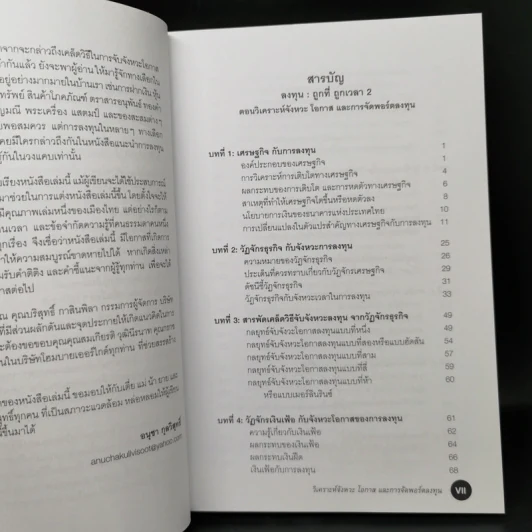 จากจะกล่าวถึงเคล็ดวิธีในการจับจังหวะโอกาส
กำกันแล้ว ยังจะพาผู้อ่าน ให้มารู้จักทางเลือกใน
อยู่อย่างมากมายในบ้านเรา เช่นการฝากเงิน หุ้น
ทรัพย์ สินค้าโภคภัณฑ์ ตราสารอนุพันธ์ ทองคำ
ญมณี พระเครื่อง แสตมป์ และของสะสมต่างๆ
พอสมควร แต่การลงทุนในหลายๆ ทางเลือก
คยมีใครกล่าวถึงกันในหนังสือแนะนำการลงทุน
รู้กันในวงแคบเท่านั้น
เรียงหนังสือเล่มนี้ แม้ผู้เขียนจะได้ใช้ประสบการณ์
มาช่วยในการแต่งหนังสือเล่มนี้ขึ้น โดยตั้งใจจะให้
มีคุณภาพเล่มหนึ่งของเมืองไทย แต่อย่างไรก็ตาม
วลา และข้อจำกัดความรู้ที่คนธรรมดาคนหนึ่ง
ถูกเรื่อง จึงเชื่อว่าหนังสือเล่มนี้ มีโอกาสที่เกิดการ
ทำให้ความสมบูรณ์ขาดหายไปได้ หากเกิดสิ่งเหล่า
มรับคำติติง และคำชี้แนะจากผู้รู้ทุกท่าน เพื่อจะได้
าสต่อไป
ณ คุณบริสุทธิ์ กาสินพิลา กรรมการผู้จัดการ บริษัท
ที่มีส่วนผลักดันและจุดประกายให้เกิดแนวคิดในการ
ะต้องขอขอบคุณคุณสมเกียรติ วุฒินีรนาท คุณ
นในบริษัทไฮมบายเออร์ไกด์ทุกท่าน ที่ช่วยสรรสร้าง
ของหนังสือเล่มนี้ ขอมอบให้กับเตี่ย แม่ น้า ยาย และ
ทธิ์ทุกคน ที่เป็นสภาวะแวดล้อม หล่อหลอมให้ผู้เขียน
ขึ้นมาได้
อนุชา กุลวิสุทธิ์
anuchakulvisoot@yahoo.com
สารบัญ
ลงทุน : ถูกที่ ถูกเวลา 2
ตอนวิเคราะห์จังหวะ โอกาส และการจัดพอร์ตลงทุน
บทที่ 1: เศรษฐกิจ กับการลงทุน 1
องค์ประกอบของเศรษฐกิจ 1
การวิเคราะห์การเติบโตทางเศรษฐกิจ 4
ผลกระทบของการเติบโต และการหดตัวทางเศรษฐกิจ 6
สาเหตุที่ทำให้เศรษฐกิจโตขึ้นหรือหดตัวลง 8
นโยบายการเงินของธนาคารแห่งประเทศไทย 10
การเปลี่ยนแปลงในตัวแปรสำคัญทางเศรษฐกิจกับการลงทุน 11
บทที่ 2: วัฏจักรธุรกิจ กับจังหวะการลงทุน 25
ความหมายของวัฏจักรธุรกิจ 26
ประเด็นที่ควรทราบเกี่ยวกับวัฏจักรเศรษฐกิจ 29
ดัชนีชี้วัฏจักรธุรกิจ 31
วัฏจักรธุรกิจกับจังหวะเวลาในการลงทุน 33
บทที่ 3: สารพัดเคล็ดวิธีจับจังหวะลงทุน จากวัฏจักรธุรกิจ 49
กลยุทธ์จับจังหวะโอกาสลงทุนแบบที่หนึ่ง 49
กลยุทธ์จับจังหวะโอกาสลงทุนแบบที่สองหรือแบบอัดลัน 54
กลยุทธ์จับจังหวะโอกาสลงทุนแบบที่สาม 57
กลยุทธ์จับจังหวะโอกาสลงทุนแบบที่สี่ 59
กลยุทธ์จับจังหวะโอกาสลงทุนแบบที่ห้า 60
หรือแบบเมอร์ลินรินซ์
บทที่ 4: วัฏจักรเงินเฟ้อ กับจังหวะโอกาสของการลงทุน 61
ความรู้เกี่ยวกับเงินเฟ้อ 62
ผลกระทบของเงินเฟ้อ 64
ผลกระทบเงินฝืด 66
เงินเฟ้อกับการลงทุน 68
วิเคราะห์จังหวะ โอกาส และการจัดพอร์ตลงทุน VII